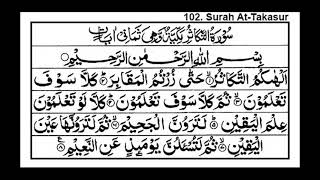 102. Surah At-Takasur
سُوْرَةُ التَّكَاثُرِ مَكِّيَّةٌ وَّهِيَ ثَمَانِيْ اٰيَاتٍ
بِسْمِ اللّٰهِ الرَّحْمٰنِ الرَّحِيْمِ
اَلْهٰىكُمُ التَّكَاثُرُ ۙ حَتّٰى زُرْتُمُ الْمَقَابِرَ ۙ كَلَّا سَوْفَ
تَعْلَمُوْنَ ۙ ثُمَّ كَلَّا سَوْفَ تَعْلَمُوْنَ ۙ كَلَّا لَوْ تَعْلَمُوْنَ
عِلْمَ الْيَقِيْنِ ۙ لَتَرَوُنَّ الْجَحِيْمَ ۙ ثُمَّ لَتَرَوُنَّهَا عَيْنَ
الْيَقِيْنِ ۙ ثُمَّ لَتُسْـَٔلُنَّ يَوْمَئِذٍ عَنِ النَّعِيْمِ